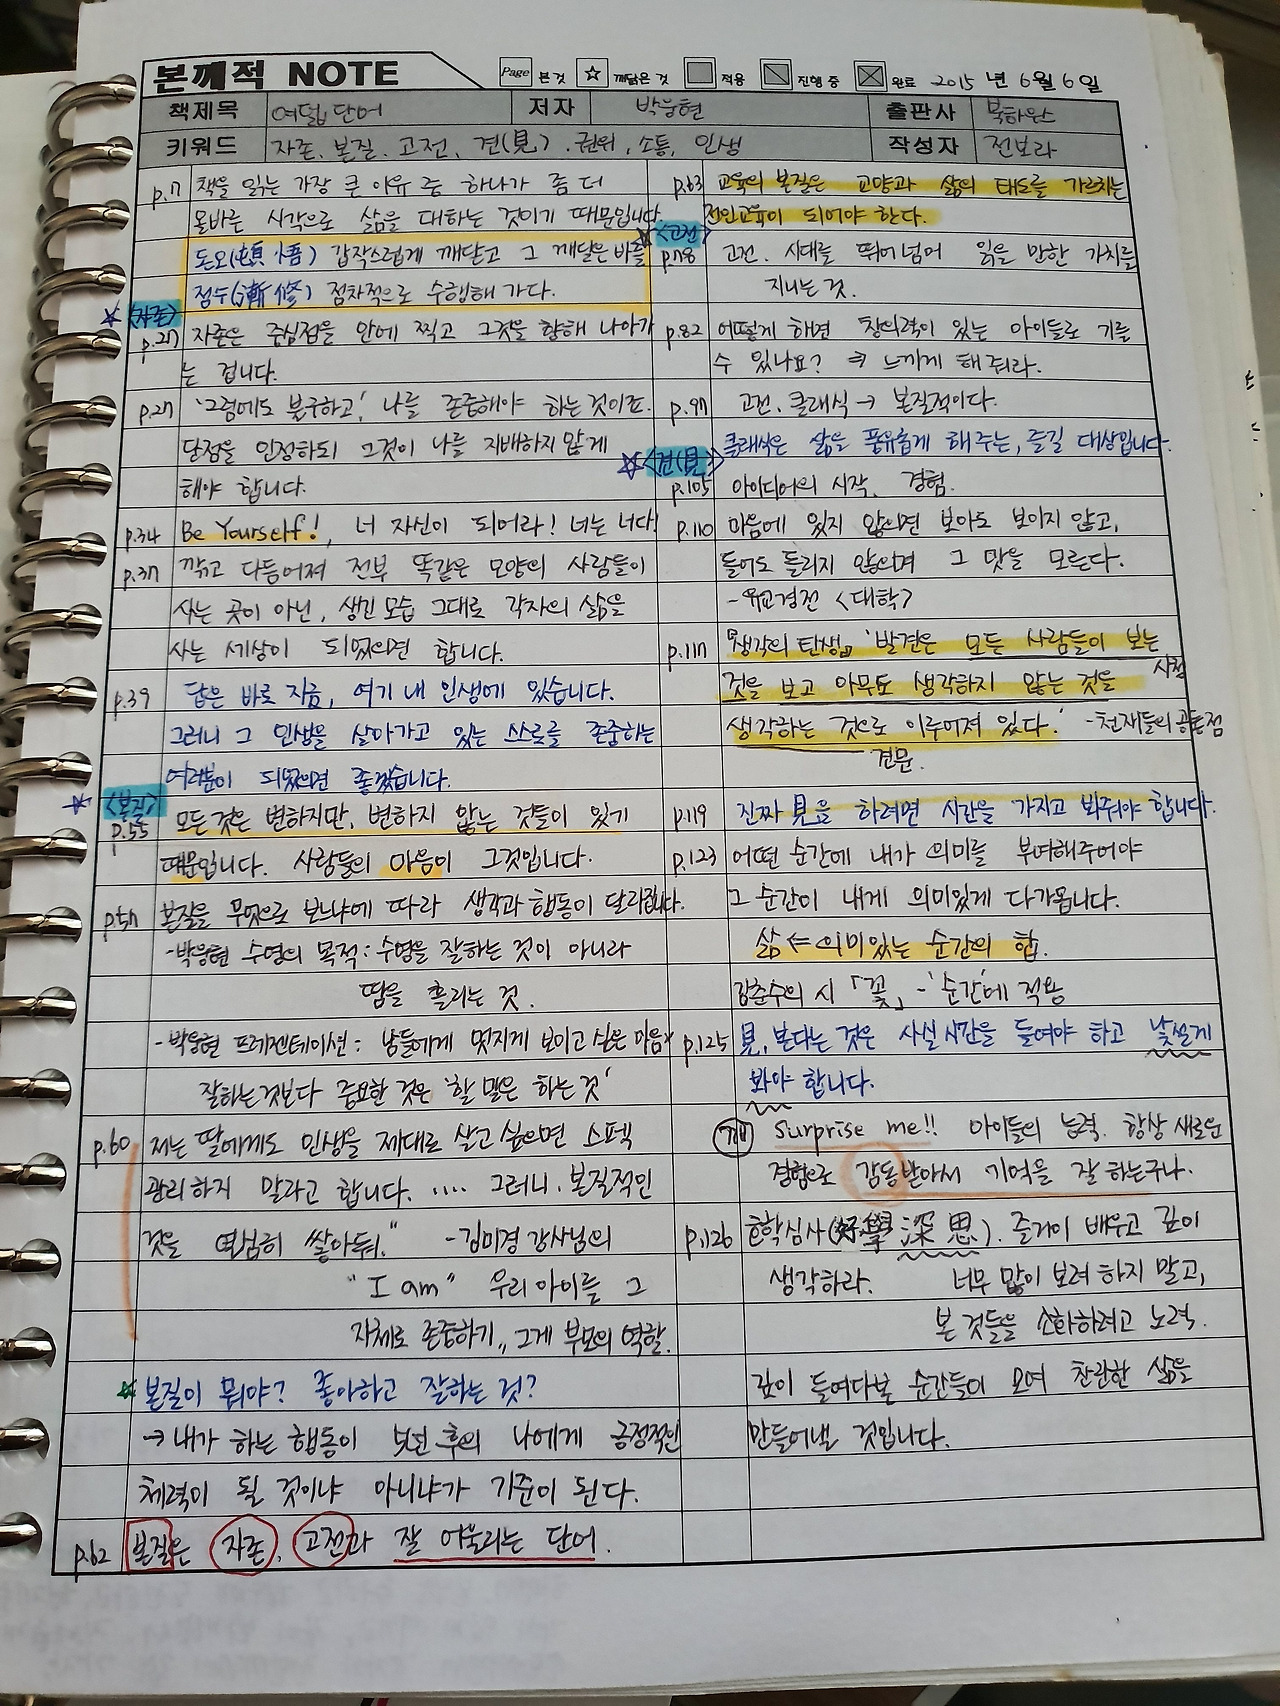 본깨적 NOTE
Page 본것 ☆ 깨달은 것 적용 진행 중 완료 2015 년 6월 6일
책제목 여덟단어 저자 박웅현 출판사 북하우스
키워드 자존, 본질, 고전, 견(見), 권위, 소통, 인생 작성자 전보라
p.7 책을 읽는 가장 큰 이유 중 하나가 좀 더
올바른 시각으로 삶을 대하는 것이기 때문입니다.
돈오(頓悟) 갑작스럽게 깨닫고 그 깨달은 바를
점수(漸修) 점차적으로 수행해 가다.
☆ <자존>
p.27 자존은 중심점을 안에 찍고 그것을 향해 나아가
는 겁니다.
p.27 '그럼에도 불구하고', 나를 존중해야 하는 것이죠.
단점을 인정하되 그것이 나를 지배하지 않게
해야 합니다.
p.34 Be Yourself!, 너 자신이 되어라! 너는 너다!
p.37 깎고 다듬어져 전부 똑같은 모양의 사람들이
사는 곳이 아닌, 생긴 모습 그대로 각자의 삶을
사는 세상이 되었으면 합니다.
p.39 답은 바로 지금, 여기 내 인생에 있습니다.
그러니 그 인생을 살아가고 있는 스스로를 존중하는
여러분이 되었으면 좋겠습니다.
☆ <본질>
p.55 모든 것은 변하지만, 변하지 않는 것들이 있기
때문입니다. 사람들의 마음이 그것입니다.
p.57 본질을 무엇으로 보느냐에 따라 생각과 행동이 달라집니다.
-박웅현 수영의 목적: 수영을 잘하는 것이 아니라
땀을 흘리는 것.
-박웅현 프레젠테이션: 남들에게 멋지게 보이고 싶은 마음x
잘하는것보다 중요한 것은 '할 말은 하는 것'
p.60 저는 딸에게도 인생을 제대로 살고 싶으면 스펙
관리하지 말라고 합니다. .... 그러니, 본질적인
것을 열심히 쌓아둬." -김미경 강사님의
"I am" 우리 아이를 그
자체로 존중하기,, 그게 부모의 역할.
☆ 본질이 뭐야? 좋아하고 잘하는 것?
→ 내가 하는 행동이 5년 후의 나에게 긍정적인
체력이 될 것이냐 아니냐가 기준이 된다.
p.62 본질은 자존, 고전과 잘 어울리는 단어.
p.63 교육의 본질은 교양과 삶의 태도를 가르치는
전인교육이 되어야 한다.
☆ <고전>
p.78 고전. 시대를 뛰어넘어 읽을 만한 가치를
지니는 것.
p.82 어떻게 해면 창의력이 있는 아이들로 기를
수 있나요? → 느끼게 해 줘라.
p.97 고전. 클래식 → 본질적이다.
클래식은 삶을 풍유롭게 해주는, 즐길 대상입니다.
☆ <견(見)>
p.105 아이디어의 시작, 경험.
p.110 마음에 있지 않으면 보아도 보이지 않고,
들어도 들리지 않으며 그 맛을 모른다.
-유교경전 <대학>
p.117 『생각의 탄생』 '발견은 모든 사람들이 보는
것을 보고 아무도 생각하지 않는 것을
생각하는 것으로 이루어져 있다.' -천재들의 공통점
시청
견문.
p.119 진짜 見을 하려면 시간을 가지고 봐줘야 합니다.
p.123 어떤 순간에 내가 의미를 부여해주어야
그 순간이 내게 의미있게 다가옵니다.
삶 ⇐ 의미있는 순간의 합.
김춘수의 시 「꽃」 -'순간'에 적용
p.125 見, 본다는 것은 사실 시간을 들여야 하고 낯설게
봐야 합니다.
Surprise me!! 아이들의 능력. 항상 새로운
경험으로 감동받아서 기억을 잘 하는구나.
p.126 호학심사(好學深思). 즐거이 배우고 깊이
생각하라. 너무 많이 보려 하지 말고,
본 것들을 소화하려고 노력.
깊이 들여다본 순간들이 모여 찬란한 삶을
만들어낼 것입니다.